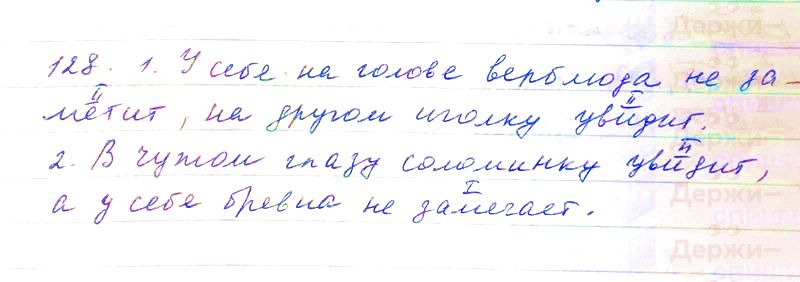 128. 1. У себе на голове верблюда не за-
II II
метит, на другом иголку увидит.
II
2. В чужом глазу соломинку увидит,
I
а у себе бревна не замечает.
Держи-
Держи-
Держи-
Держи-